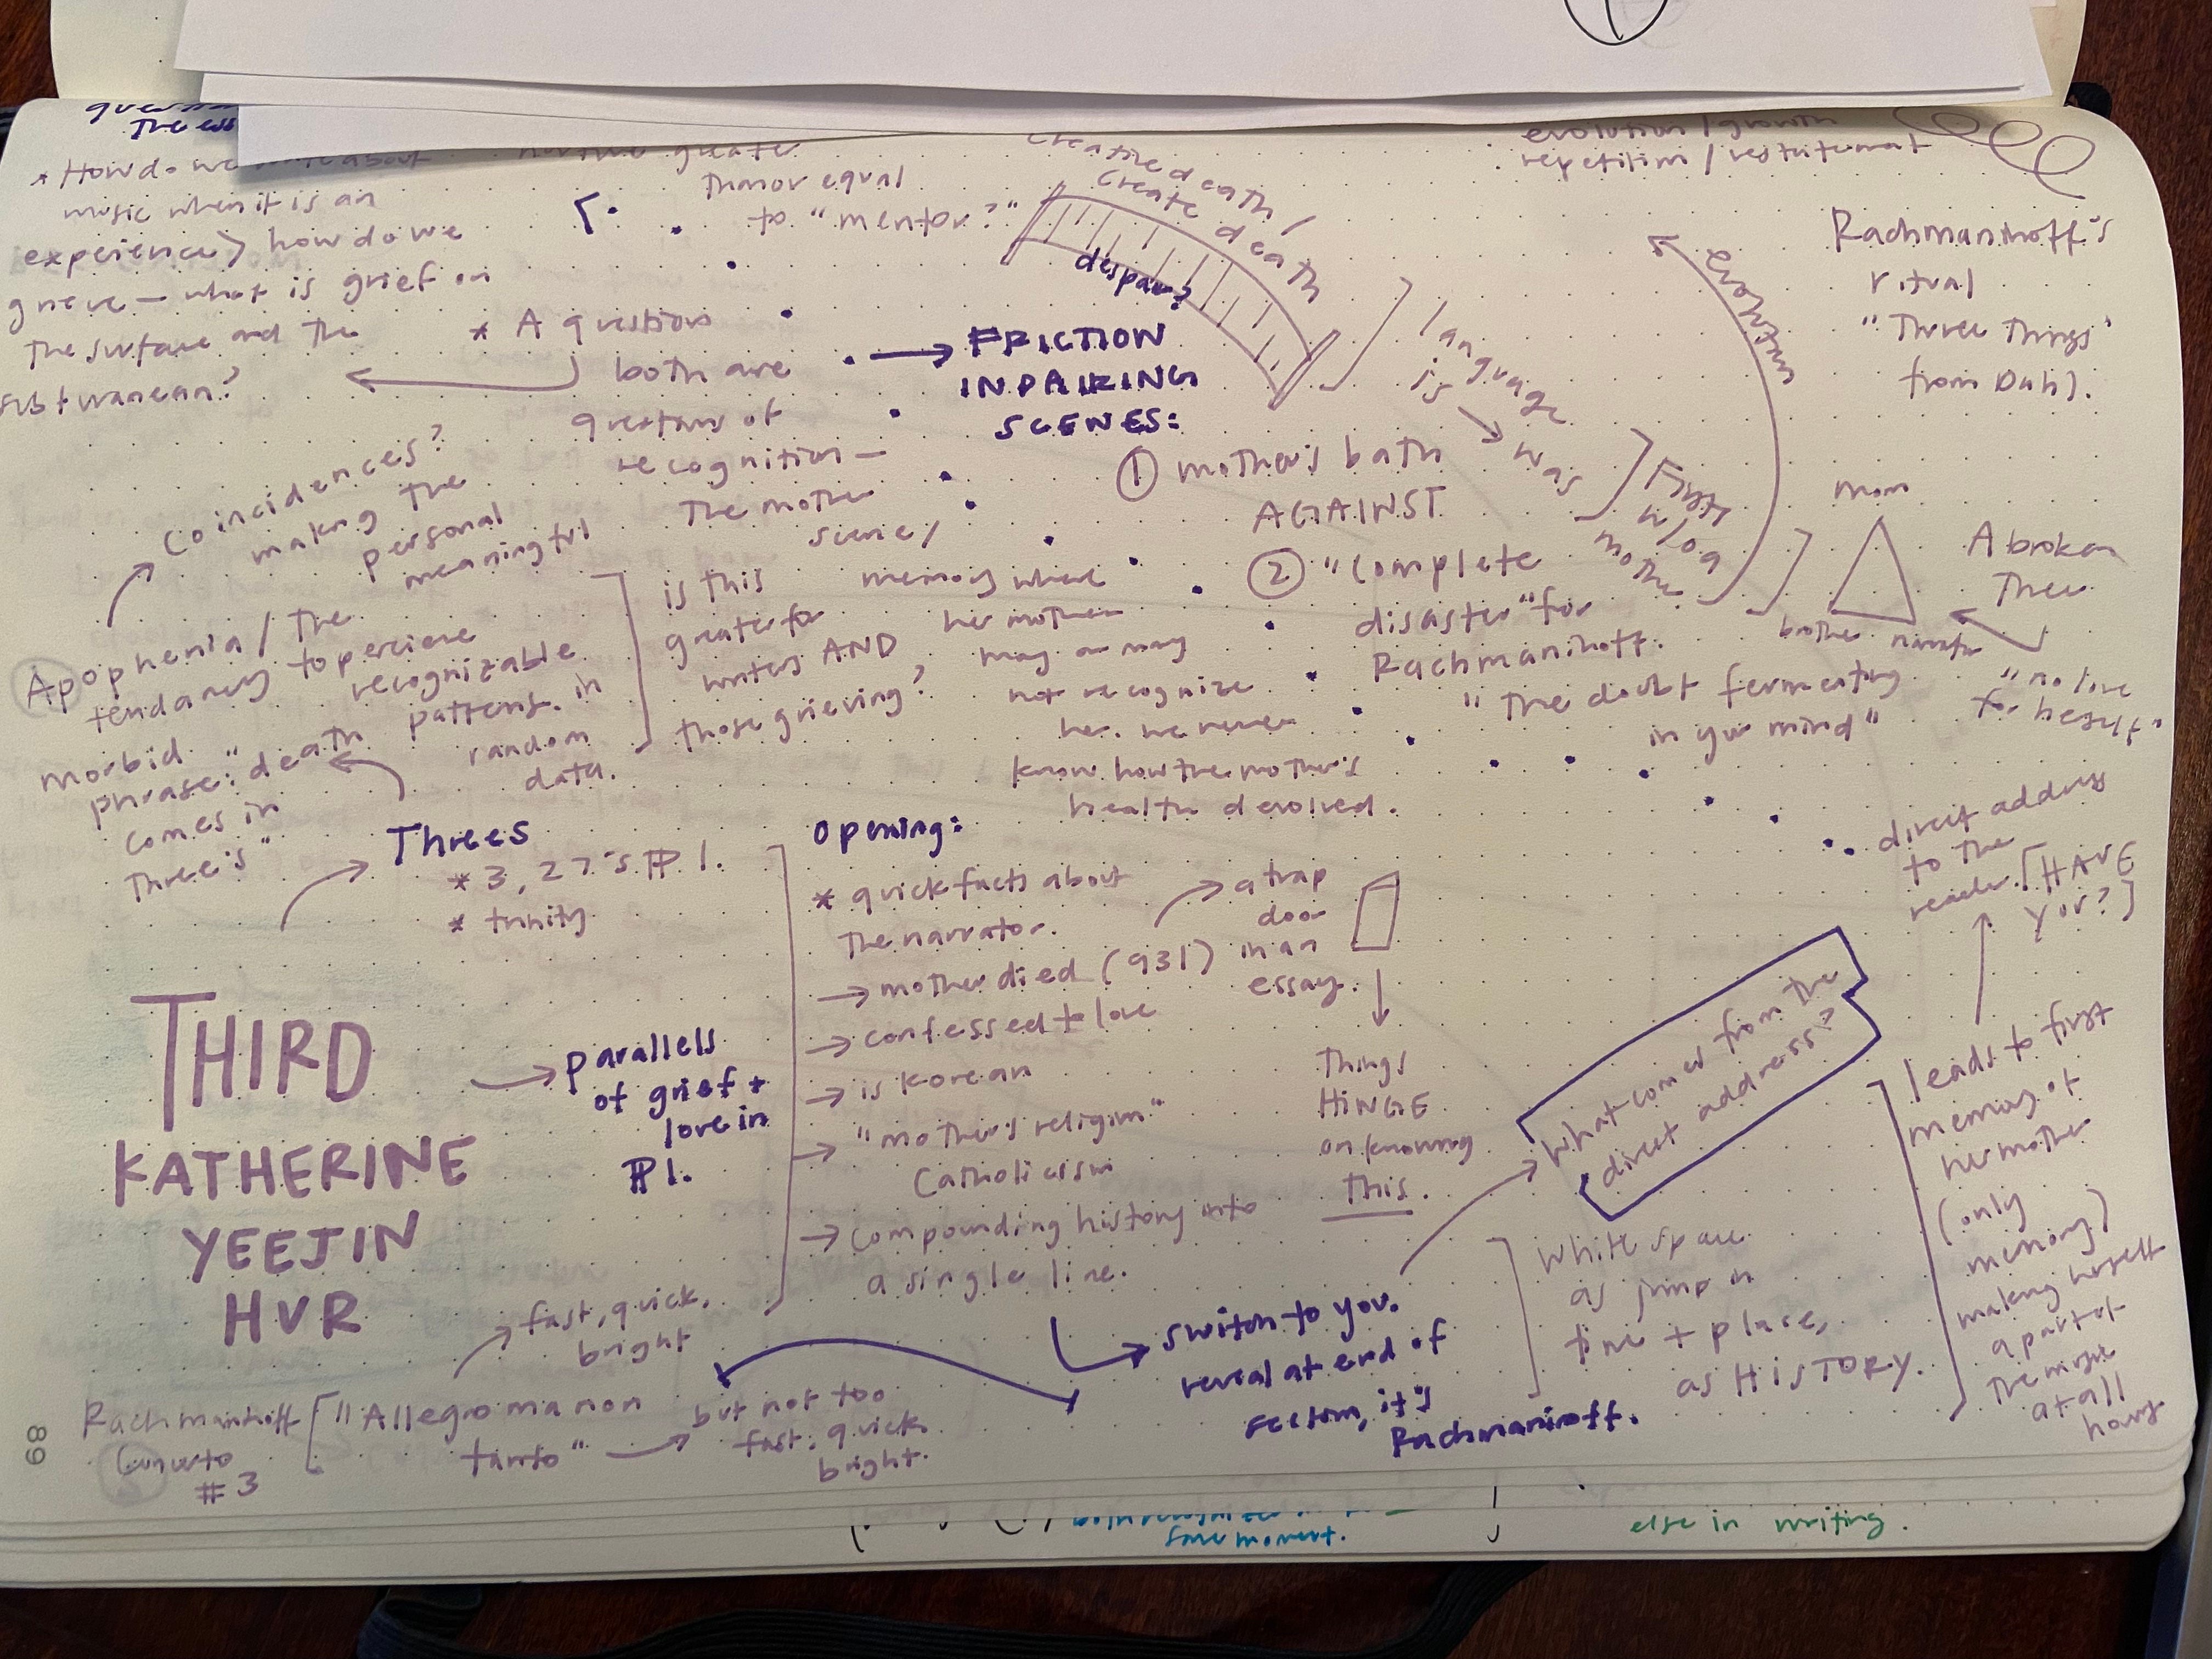 THIRD
KATHERINE
YEEJIN
HUR
Rachmaninoff
Concerto
#3
"Allegro ma non
tanto"
fast, quick,
bright
but not too
fast, quick,
bright.
Parallels
of grief +
love in
P 1.
Threes
* 3, 27's P 1.
* trinity
morbid
phrase: "death
comes in
three's"
Apophenia / the
tendancy to percieve
recognizable
patterns in
random
data.
Coincidences?
making the
personal
meaningful
is this
greater for
writers AND
those grieving?
* How do we about
music when it is an
experience> how do we
grieve — what is grief on
the surface and the
subterranean?
greater
than or equal
to "mentor?"
* A question
both are
questions of
recognition —
The mother
scene /
memory where
her mother
may or may
not recognize
her. we never
know how the mother's
health devolved.
Opening:
* quick facts about
the narrator.
→ mother died (931)
→ confessed to love
→ is Korean
→ "mother's religion"
Catholicism
→ compounding history into
a single line.
a trap
door
in an
essay.
Things
HINGE
on knowing
this.
switch to you.
reveal at end of
section, it's
Rachmaninoff.
What comes from the
direct address?
White space
as jump in
time + place,
as HISTORY.
leads to first
memory of
her mother
(only
memory)
making herself
a part of
the music
at all
hours
direct address
to the
reader [HAVE
YOU?]
→ FRICTION
IN PAIRING
SCENES:
① mother's bath
AGAINST
② "complete
disaster" for
Rachmaninoff.
"The doubt fermenting
in your mind"
creative death /
create death
despair?
language
is → was
First
w/ og
mother
evolution
evolution / growth
repetition / restatement
Rachmaninoff's
ritual
"Three Things"
from Dah).
mom
brother narrator
A broken
Three
"no love
for herself"
89
same moment.
else in writing.